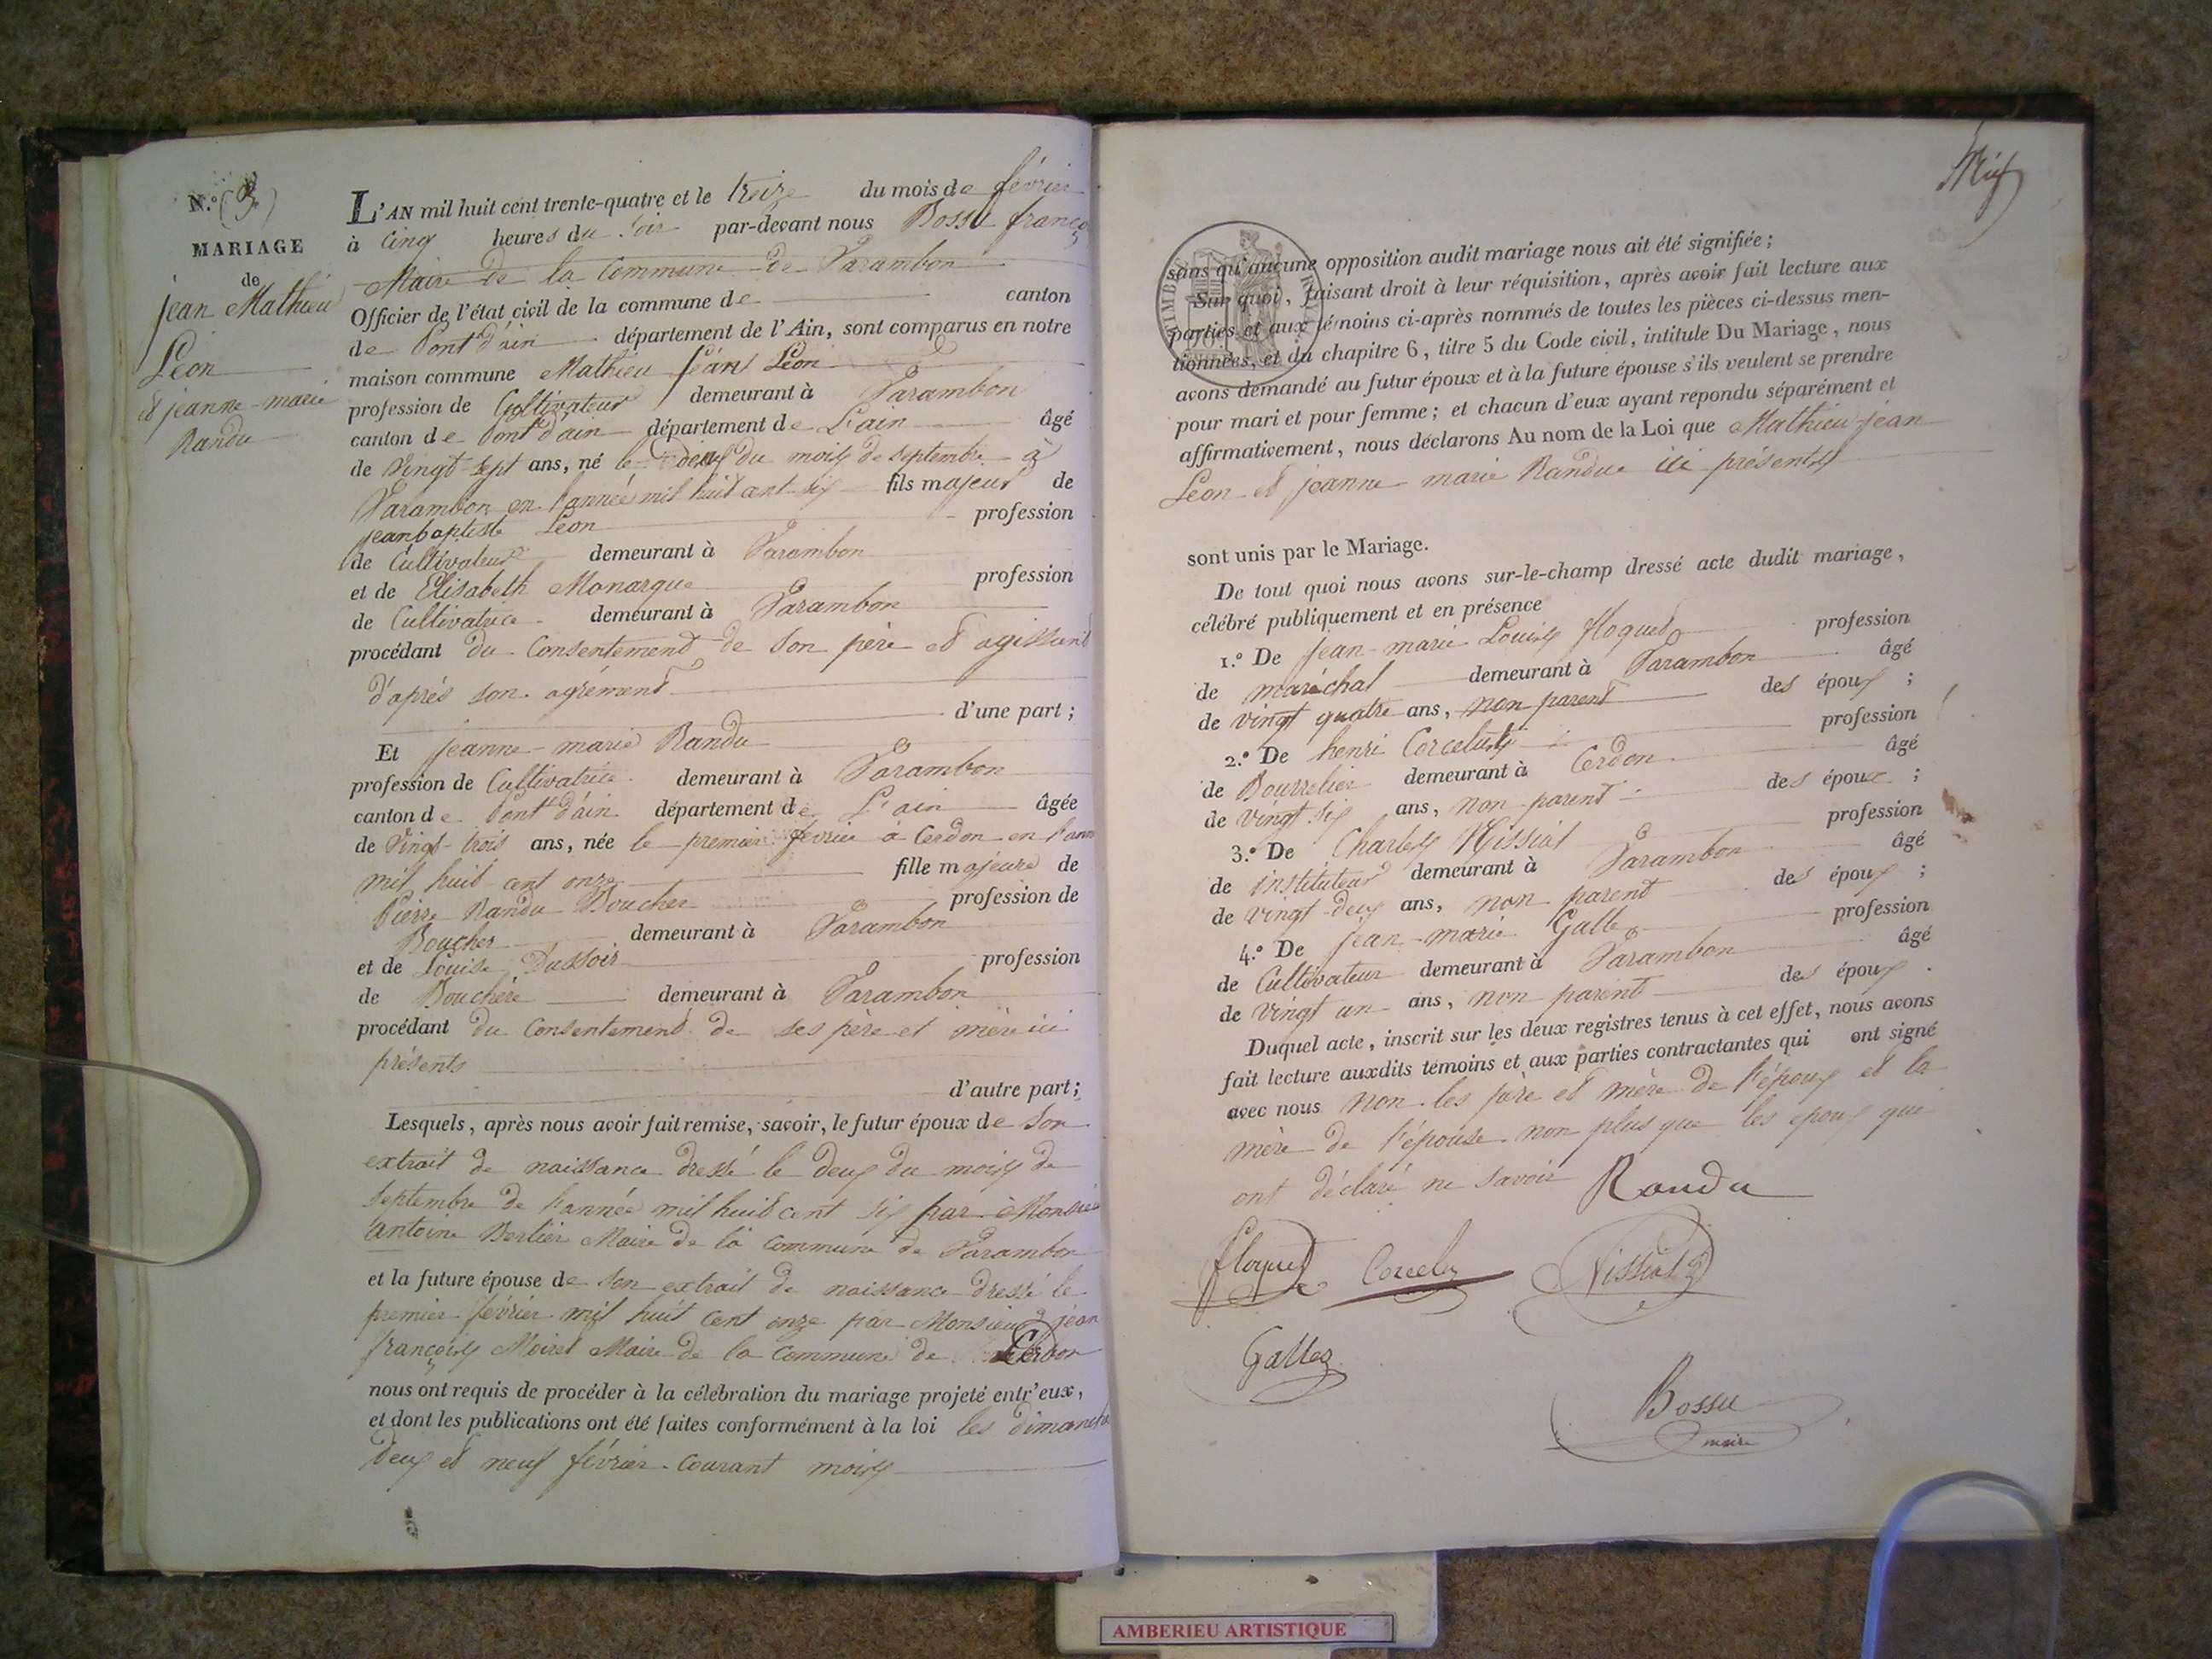 N.o (3)
MARIAGE
de
jean Mathieu
Léon
et jeanne-marie
Randu
L'AN mil huit cent trente-quatre et le treize du mois de février
à Cinq heures du soir par-devant nous Bossu françois
Maire de la Commune de Varambon
Officier de l'état civil de la commune de canton
de Pont d'ain département de l'Ain, sont comparus en notre
maison commune Mathieu jean Léon
profession de Cultivateur demeurant à Varambon
canton de Pont d'ain département de L'ain âgé
de vingt sept ans, né le deux du mois de septembre à
Varambon en l'année mil huit cent six fils majeur de
jean baptiste Léon profession
de Cultivateur demeurant à Varambon
et de Elisabeth Monarque profession
de Cultivatrice demeurant à Varambon
procédant du Consentement de son père et agissant
d'après son agrément
d'une part ;
Et jeanne-marie Randu
profession de Cultivatrice demeurant à Varambon
canton de Pont d'ain département de L'ain âgée
de vingt-trois ans, née le premier février à Cerdon en l'ann
mil huit cent onze fille majeure de
Pierre Randu Boucher profession de
Boucher demeurant à Varambon
et de Louise Dussoir profession
de Bouchère demeurant à Varambon
procédant du Consentement de ses père et mère ici
présents
d'autre part ;
Lesquels, après nous avoir fait remise, savoir, le futur époux de son
extrait de naissance dressé le deux du mois de
septembre de l'année mil huit cent six par Monsieur
antoine Berlier Maire de la commune de Varambon
et la future épouse de son extrait de naissance dressé le
premier février mil huit cent onze par Monsieur jean
françois Moiret Maire de la Commune de Cerdon
nous ont requis de procéder à la célébration du mariage projeté entr'eux,
et dont les publications ont été faites conformément à la loi les dimanche
deux et neuf février courant mois
sans qu'aucune opposition audit mariage nous ait été signifiée ;
Sur quoi, faisant droit à leur réquisition, après avoir fait lecture aux
parties et aux témoins ci-après nommés de toutes les pièces ci-dessus men-
tionnées, et du chapitre 6, titre 5 du Code civil, intitule Du Mariage, nous
avons demandé au futur époux et à la future épouse s'ils veulent se prendre
pour mari et pour femme ; et chacun d'eux ayant repondu séparément et
affirmativement, nous déclarons Au nom de la Loi que Mathieu jean
Léon et jeanne marie Randu ici présents
sont unis par le Mariage.
De tout quoi nous avons sur-le-champ dressé acte dudit mariage,
célébré publiquement et en présence
1.o De jean-marie Louis floquet profession
de maréchal demeurant à Varambon âgé
de vingt quatre ans, non parent des époux ;
2.o De henri Corcelus profession
de Bourrelier demeurant à Cerdon âgé
de vingt six ans, non parent des époux ;
3.o De Charles Nissiat profession
de instituteur demeurant à Varambon âgé
de vingt-deux ans, non parent des époux ;
4.o De jean-marie Galle profession
de Cultivateur demeurant à Varambon âgé
de vingt un ans, non parent des époux .
Duquel acte, inscrit sur les deux registres tenus à cet effet, nous avons
fait lecture auxdits témoins et aux parties contractantes qui ont signé
avec nous non les père et mère de l'époux et la
mère de l'épouse non plus que les epoux que
ont déclaré ne savoir Randu
floquet Nissiat
Bossu
maire
AMBERIEU ARTISTIQUE